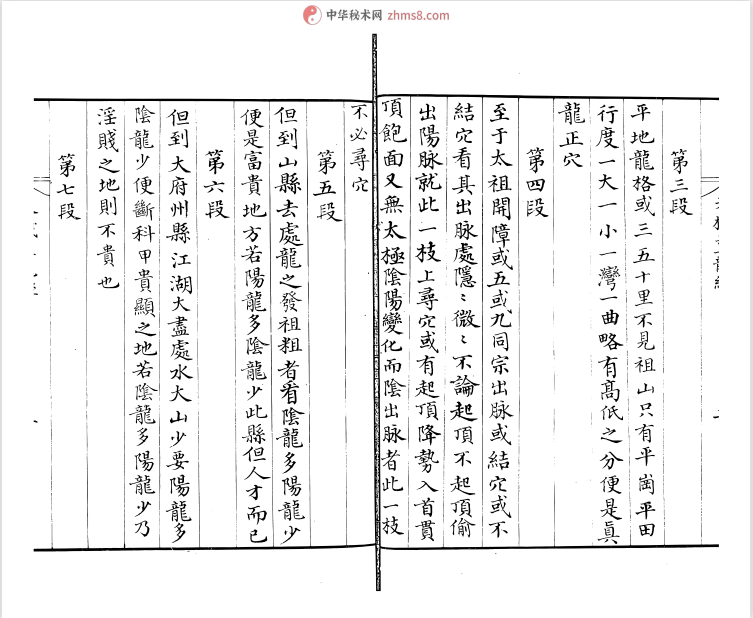 中华秘术网 zhms8.com
第三段
平地龍格或三五十里不見祖山只有平崗平田
行度一大一小一灣一曲略有高低之分便是眞
龍正穴
第四段
至于太祖開障或五或九同宗出脉或結穴或不
結穴看其出脉處隱〻微〻不論起頂不起頂偷
出陽脉就此一枝上尋穴或有起頂降勢入首貫
頂飽面又無太極陰陽變化而陰出脉者此一枝
不必尋穴
第五段
但到山縣去處龍之發祖粗者看陰龍多陽龍少
便是富貴地方若陽龍多陰龍少此縣但人才而已
第六段
但到大府州縣江湖大盡處水大山少要陽龍多
陰龍少便斷科甲貴顯之地若陰龍多陽龍少乃
淫賤之地則不貴也
第七段